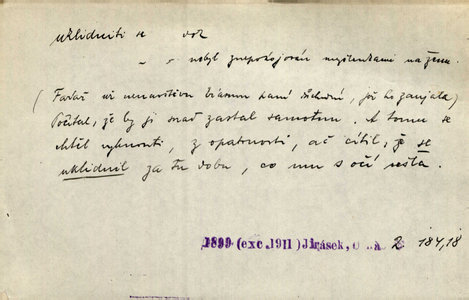 uklidniti se dok
" " nebyl znepokojován myšlenkami na ženu.
(Farář už nenavštívu krásnou paní důchodní, jež ho zaujala)
Počítal, že by ji snad zastal samotnu. A tomu se
chtěl vyhnouti, z opatrnosti, ač cítil, že se
uklidnil za tu dobu, co mu s očí sešla.
1899 (exc. 1911) Jirásek, 2 184,18